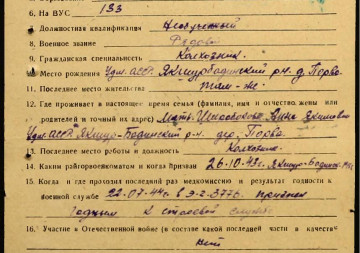 6. На ВУС 133
7. Должностная квалификация Необученный
8. Военное звание Рядовой
9. Гражданская специальность Колхозник
10. Место рождения Удм. АССР. Якшур-Бодьинский р-н. д. Порва
11. Последнее место жительства там-же
12. Где проживает в настоящее время семья (фамилия, имя и отчество жены или
родителей и точный их адрес) Мать: Анна Якимовна
Удм. АССР Якшур-Бодинский р-н дер. Порва.
13. Последнее место работы и должность Колхозник
14. Каким райгорвоенкоматом и когда призван 26.10.43г. Якшур-Бодьинск. РВК
15. Когда и где проходил последний раз медкомиссию и результат годности к
военной службе 22.07.44г. в Э-г. 3776 признан
годным к строевой службе
16. Участие в Отечественной войне (в составе какой последней части в качестве
нет